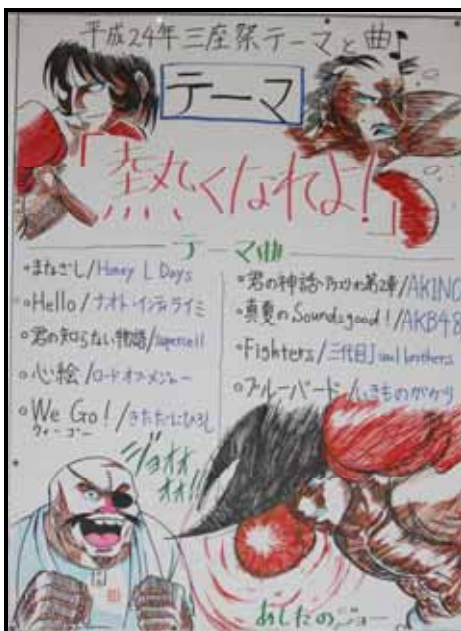 平成24年三座祭テーマと曲♪
テーマ
「熱くなれよ!」
テーマ曲
・まなざし/Honey L Days
・Hello/ナオト・インティライミ
・君の知らない物語/supercell
・心絵/ロードオブメジャー
・We Go!/きただにひろし
ウィーゴー
・君の神話~アクエリオン第2章/AKINO
・真夏のSounds good!/AKB48
・Fighters/三代目J soul brothers
・ブルーバード/いきものがかり
ジョオオオオ!!
あしたのジョー